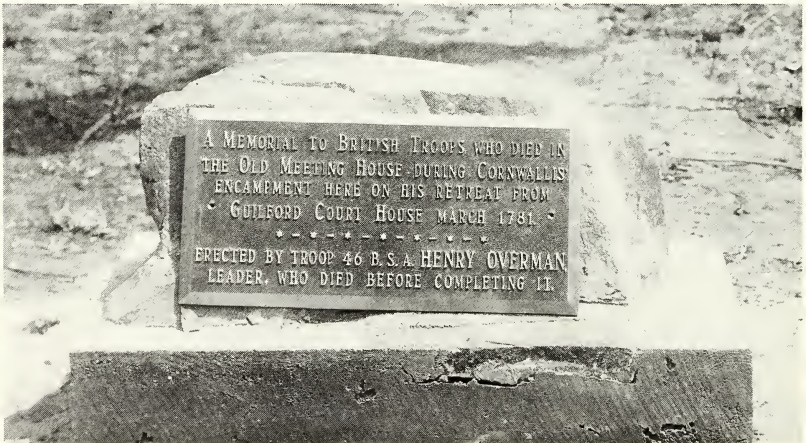 A MEMORIAL TO BRITISH TROOPS WHO DIED IN
THE OLD MEETING HOUSE DURING CORNWALLIS'
ENCAMPMENT HERE ON HIS RETREAT FROM
GUILFORD COURT HOUSE MARCH 1781
ERECTED BY TROOP 46 B.S.A. HENRY OVERMAN,
LEADER, WHO DIED BEFORE COMPLETING IT.